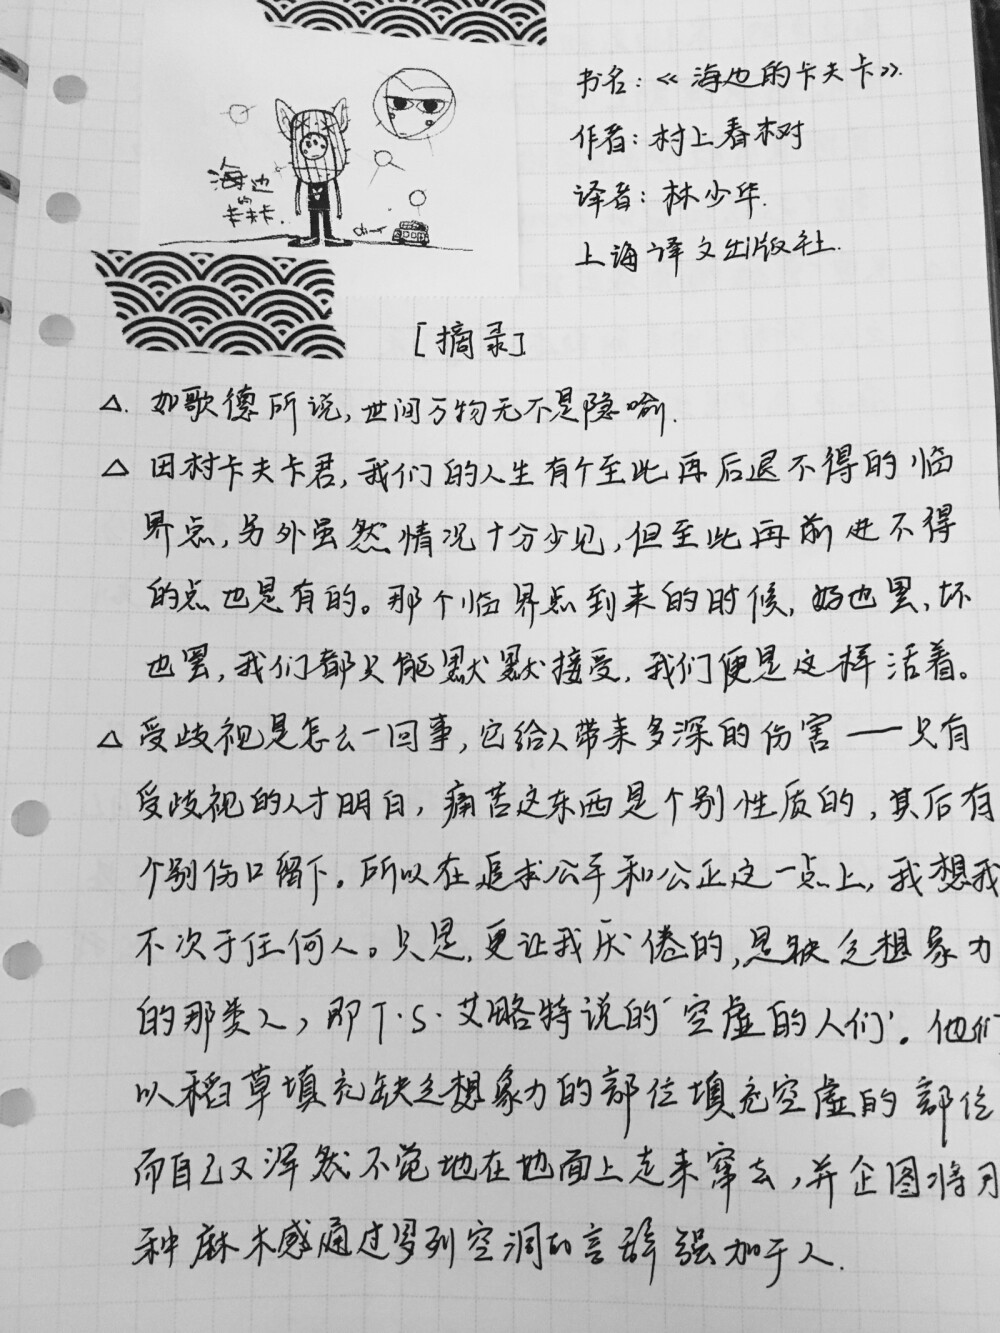 书名:《海边的卡夫卡》.
作者:村上春树
译者:林少华.
上海译文出版社.
海边
的
卡夫卡.
[摘录]
△. 如歌德所说,世间万物无不是隐喻.
△ 田村卡夫卡君,我们的人生有个至此再后退不得的临
界点,另外虽然情况十分少见,但至此再前进不得
的点也是有的。那个临界点到来的时候,好也罢,坏
也罢,我们都只能默默接受,我们便是这样活着。
△ 受歧视是怎么一回事,它给人带来多深的伤害——只有
受歧视的人才明白,痛苦这东西是个别性质的,其后有
个别伤口留下。所以在追求公平和公正这一点上,我想我
不次于任何人。只是,更让我厌倦的,是缺乏想象力
的那类人,即T·S·艾略特说的‘空虚的人们’。他们
以稻草填充缺乏想象力的部位填充空虚的部位
而自己又浑然不觉地在地面上走来窜去,并企图将
种麻木感通过罗列空洞的言辞强加于人.